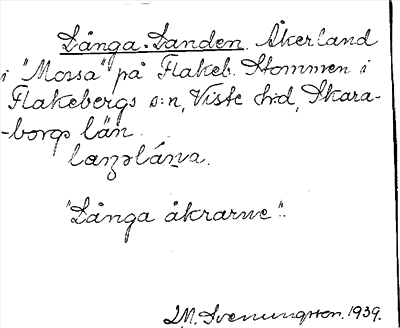 Långa-Landen. Åkerland
i "Mossa" på Flakeb. Stommen i
Flakebergs s:n, Viste h:d, Skara-
-borgs län.

"Långa åkrarne".
I.M. Svenungsson. 1939.